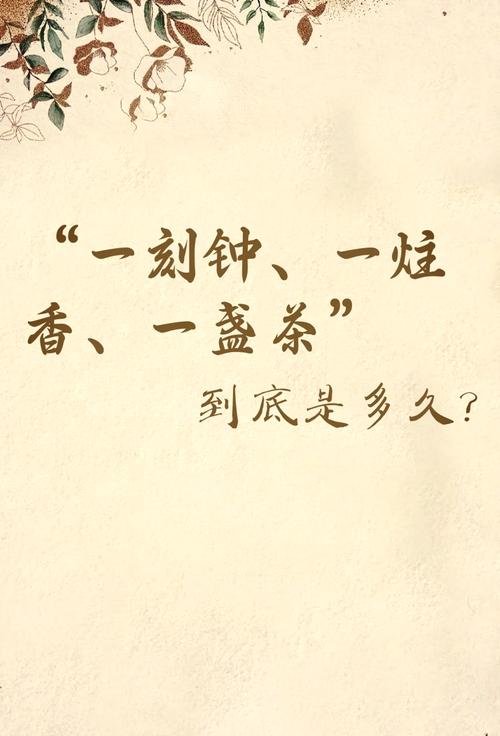 “一刻钟、一炷
香、一盏茶”
到底是多久?